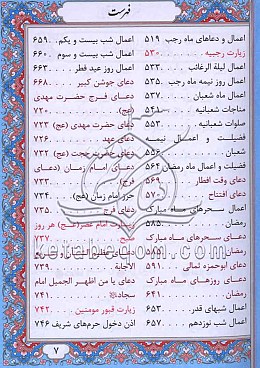 فهرست
اعمال و دعاهای ماه رجب ۵۱۹
زیارت رجبیه ... ۵۳۰
اعمال لیلة الرغائب ... ۵۳۳
اعمال روز نیمه ماه رجب ... ۵۳۵
اعمال ماه شعبان ... ۵۳۷
مناجات شعبانیه ... ۵۴۱
صلوات شعبانیه ... ۵۵۳
فضیلت و اعمال نیمه
شعبان ... ۵۵۶
فضیلت و اعمال ماه رمضان ۵۶۴
دعای وقت افطار ... ۵۶۹
دعای افتتاح ... ۵۷۰
اعمال سحرهای ماه مبارک
رمضان ... ۵۸۵
دعای سحرهای ماه مبارک
رمضان
دعای ابوحمزه ثمالی ... ۵۹۱
دعای روزهای ماه مبارک
رمضان ... ۶۴۱
اعمال شبهای قدر ... ۶۵۳
اعمال شب نوزدهم ... ۶۵۷
اعمال شب بیست و یکم ... ۶۵۹
اعمال شب بیست و سوم ... ۶۶۰
اعمال روز عید فطر ... ۶۶۳
دعای جوشن کبیر ... ۶۶۸
دعای فرج حضرت مهدی
(عج) ... ۷۲۰
دعای حضرت مهدی (عج) ۷۲۳
دعای عهد ... ۷۲۶
دعای حضرت حجت (عج) ۷۳۲
دعای امام زمان (دعای
فرج) ... ۷۳۳
حرز امام زمان (عج) ... ۷۳۴
دعای فرج ... ۷۳۵
زیارت امام عصر(عج) هر روز
صبح ... ۷۳۷
دعای
الاجابة ... ۷۳۹
دعای یا من اظهر الجمیل امام
سجاد ... ۷۴۱
زیارت قبور مومنین ... ۷۴۲
اذن دخول حرم‌های شریف ۷۴۶
ketabeqom.com
۷